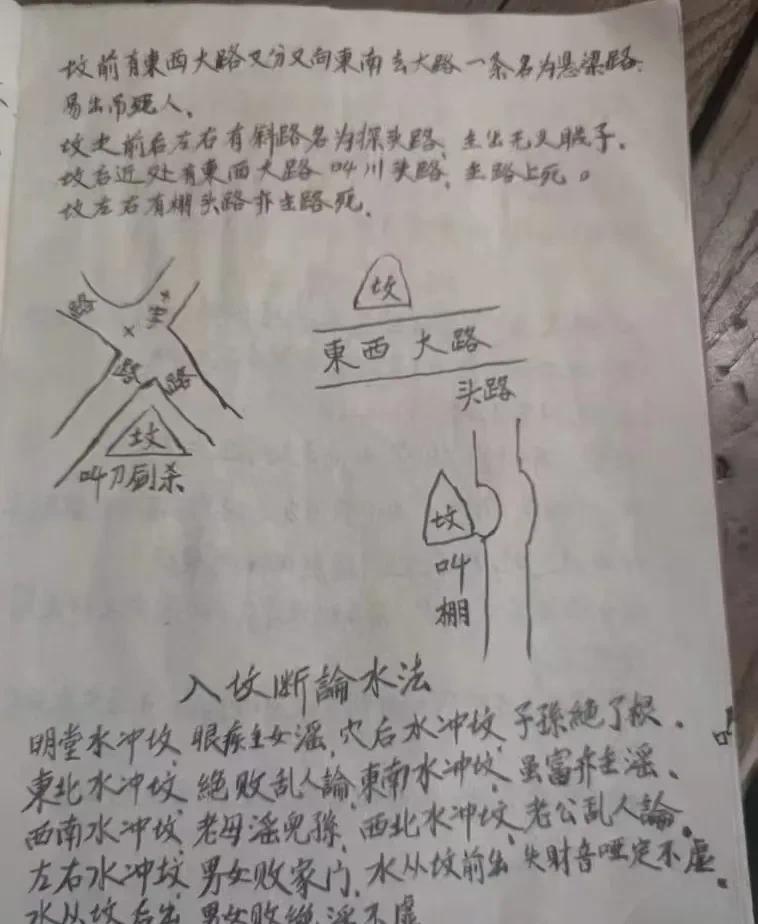 坟前有東西大路又分叉向東南去大路一条名为悬梁路.
易出吊死人.
坟史前后左右有斜路名为探头路,主出无头贼子.
坟后近处有東西大路叫川头路,主路上死。
坟左右有棚头路亦主路死.
坟
東西大路
头路
路
路
路
坟
叫刀剑杀
坟
叫
棚
入坟断論水法
明堂水冲坟,眼疾主女滛,穴后水冲坟,子孫絶了根.
東北水冲坟,絶败乱人論,東南水冲坟,虽富亦主滛、
西南水冲坟,老母滛兒孫,西北水冲坟,老公乱人論。
左右水冲坟,男女败家门,水从坟前出失財音哑定不虚.
水从坟后出,男女败絶滛不虚